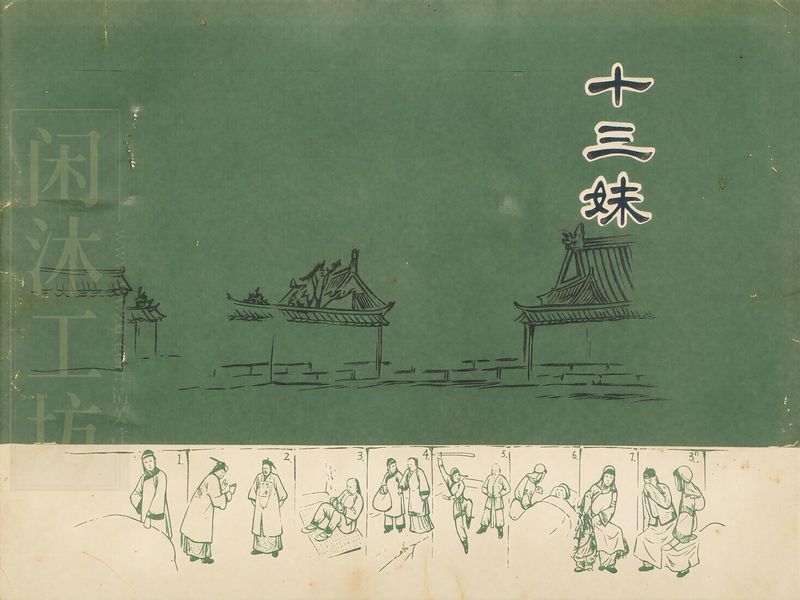 十三妹
闲沐工坊
1.
2.
3.
4.
5.
6.
7.